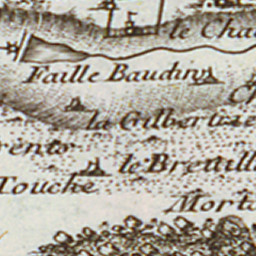 le Cha
Faille Baudin
Ch
la Gilbertiere
rente
le Breuill
Touche
Morta